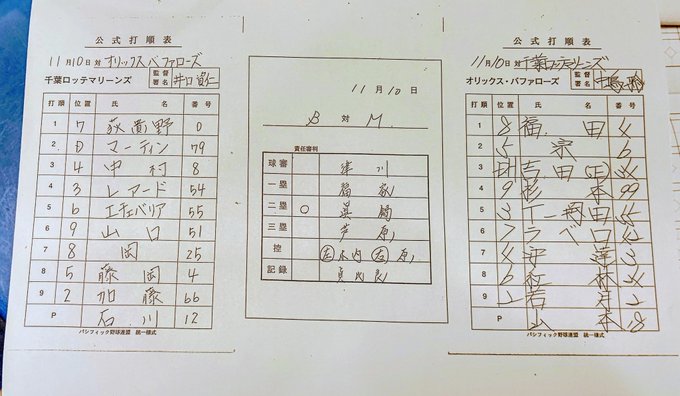 公式打順表
11月10日 対 オリックスバファローズ
千葉ロッテマリーンズ 監督署名 井口資仁
打順 位置 氏名 番号
1 7 荻貴野 0
2 D マーティン 79
3 4 中村 8
4 3 レアード 54
5 6 エチェバリア 55
6 9 山口 51
7 8 岡 25
8 5 藤岡 4
9 2 加藤 66
P 石川 12
パシフィック野球連盟 統一様式
11月10日
B 対 M
責任審判
球審 津川
一塁 福家
二塁 ○ 眞鍋
三塁 芦原
控 左 木内 右 原
記録
公式打順表
11月10日 対 千葉ロッテマリーンズ
オリックス・バファローズ 監督署名
打順 位置 氏名 番号
1 8 福田
2 5 宗 6
3 DH 吉田(正)
4 9 杉本 99
5 3 T-岡田 55
6 7 ラベロ
7 4 安達 3
8 6 紅林
9 2 若月 2
P 山本 18
パシフィック野球連盟 統一様式